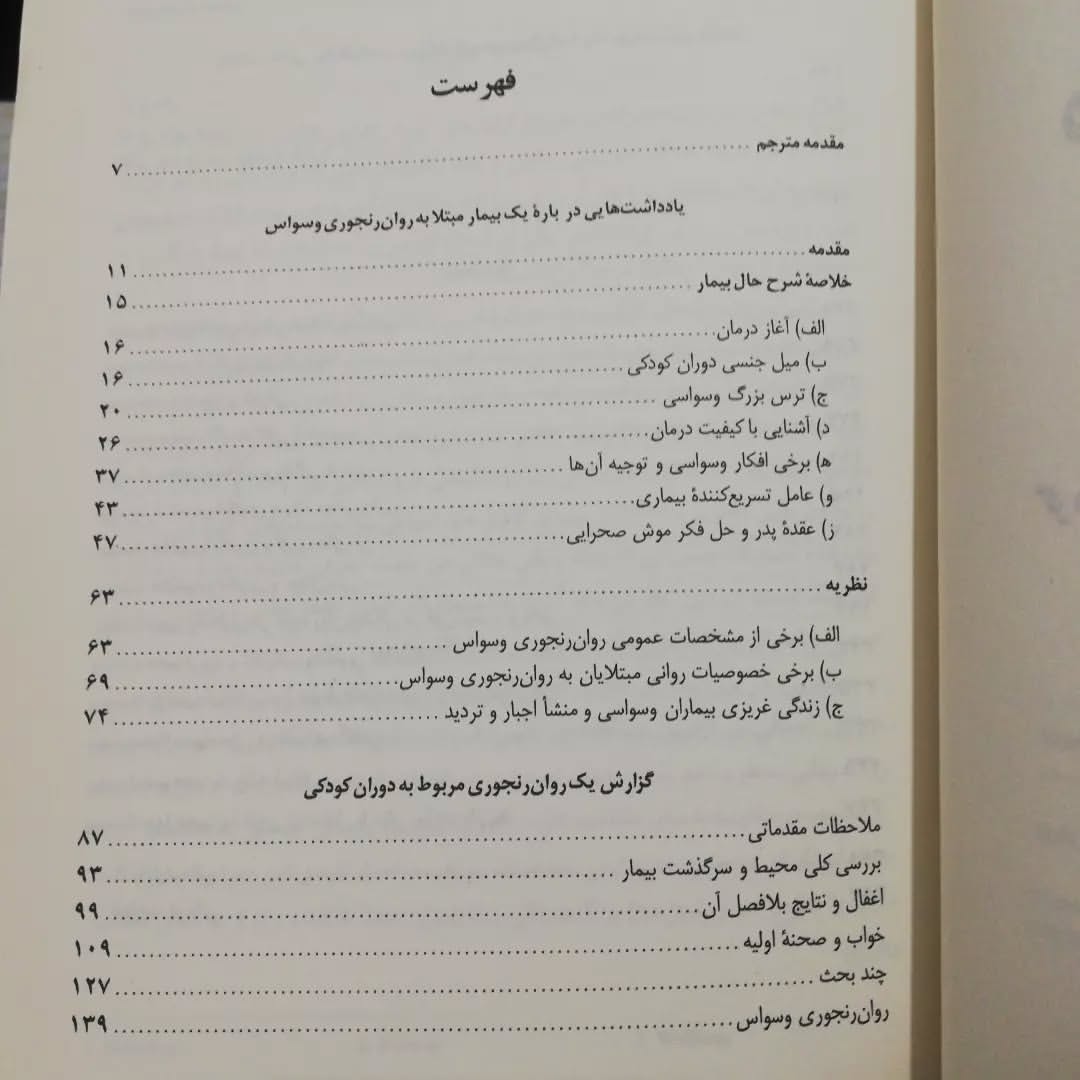 فهرست
مقدمه مترجم ........ ۷
یادداشت‌هایی در بارهٔ یک بیمار مبتلا به روان‌رنجوری وسواس
مقدمه ........ ۱۱
خلاصهٔ شرح حال بیمار ........ ۱۵
الف) آغاز درمان ........ ۱۶
ب) میل جنسی دوران کودکی ........ ۱۶
ج) ترس بزرگ وسواسی ........ ۲۰
د) آشنایی با کیفیت درمان ........ ۲۶
ه) برخی افکار وسواسی و توجیه آن‌ها ........ ۳۷
و) عامل تسریع‌کنندهٔ بیماری ........ ۴۳
ز) عقدهٔ پدر و حل فکر موش صحرایی ........ ۴۷
نظریه ........ ۶۳
الف) برخی از مشخصات عمومی روان‌رنجوری وسواس ........ ۶۳
ب) برخی خصوصیات روانی مبتلایان به روان‌رنجوری وسواس ........ ۶۹
ج) زندگی غریزی بیماران وسواسی و منشأ اجبار و تردید ........ ۷۴
گزارش یک روان‌رنجوری مربوط به دوران کودکی
ملاحظات مقدماتی ........ ۸۷
بررسی کلی محیط و سرگذشت بیمار ........ ۹۳
اغفال و نتایج بلافصل آن ........ ۹۹
خواب و صحنهٔ اولیه ........ ۱۰۹
چند بحث ........ ۱۲۷
روان‌رنجوری وسواس ........ ۱۳۹